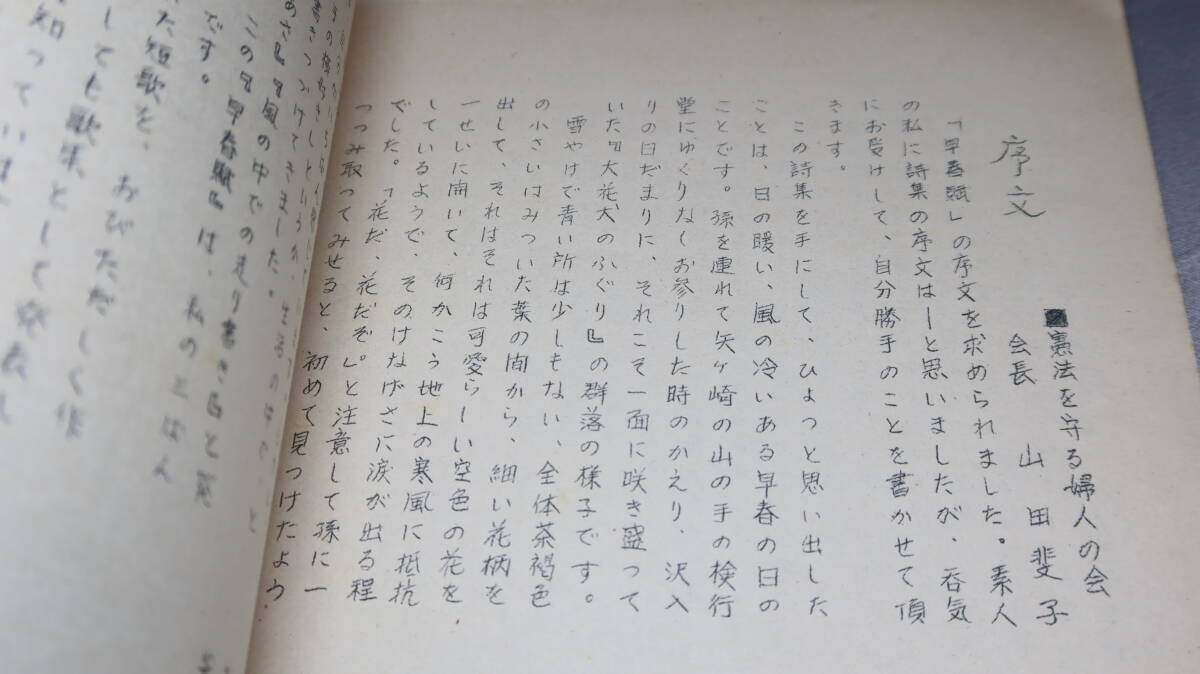 序文
憲法を守る婦人の会
会長 山田斐子
「早春賦」の序文を求められました。素人
の私に詩集の序文は―と思いましたが、呑気
にお受けして、自分勝手のことを書かせて頂
きます。
この詩集を手にして、ひょっと思い出した
ことは、日の暖い、風の冷いある早春の日の
ことです。孫を連れて矢ヶ崎の山の手の検行
堂にゆくりなくお参りした時のかえり、沢入
りの日だまりに、それこそ一面に咲き盛って
いた『犬花犬のふぐり』の群落の様子です。
雪やけで青い所は少しもない、全体茶褐色
の小さいはみついた葉の間から、細い花柄を
出して、それはそれは可愛らしい空色の花を
一せいに開いて、何かこう地上の寒風に抵抗
しているようで、そのけなげさに涙が出る程
でした。「花だ、花だぞ」と注意して孫に一
つつみ取ってみせると、初めて見つけたよう
書きつづけてきました。
めさ』『風の中での走り書き』と
この『早春賦』は、私の三ばん
です。
た短歌を、おびただしく作
しても歌集として発表
知ってい